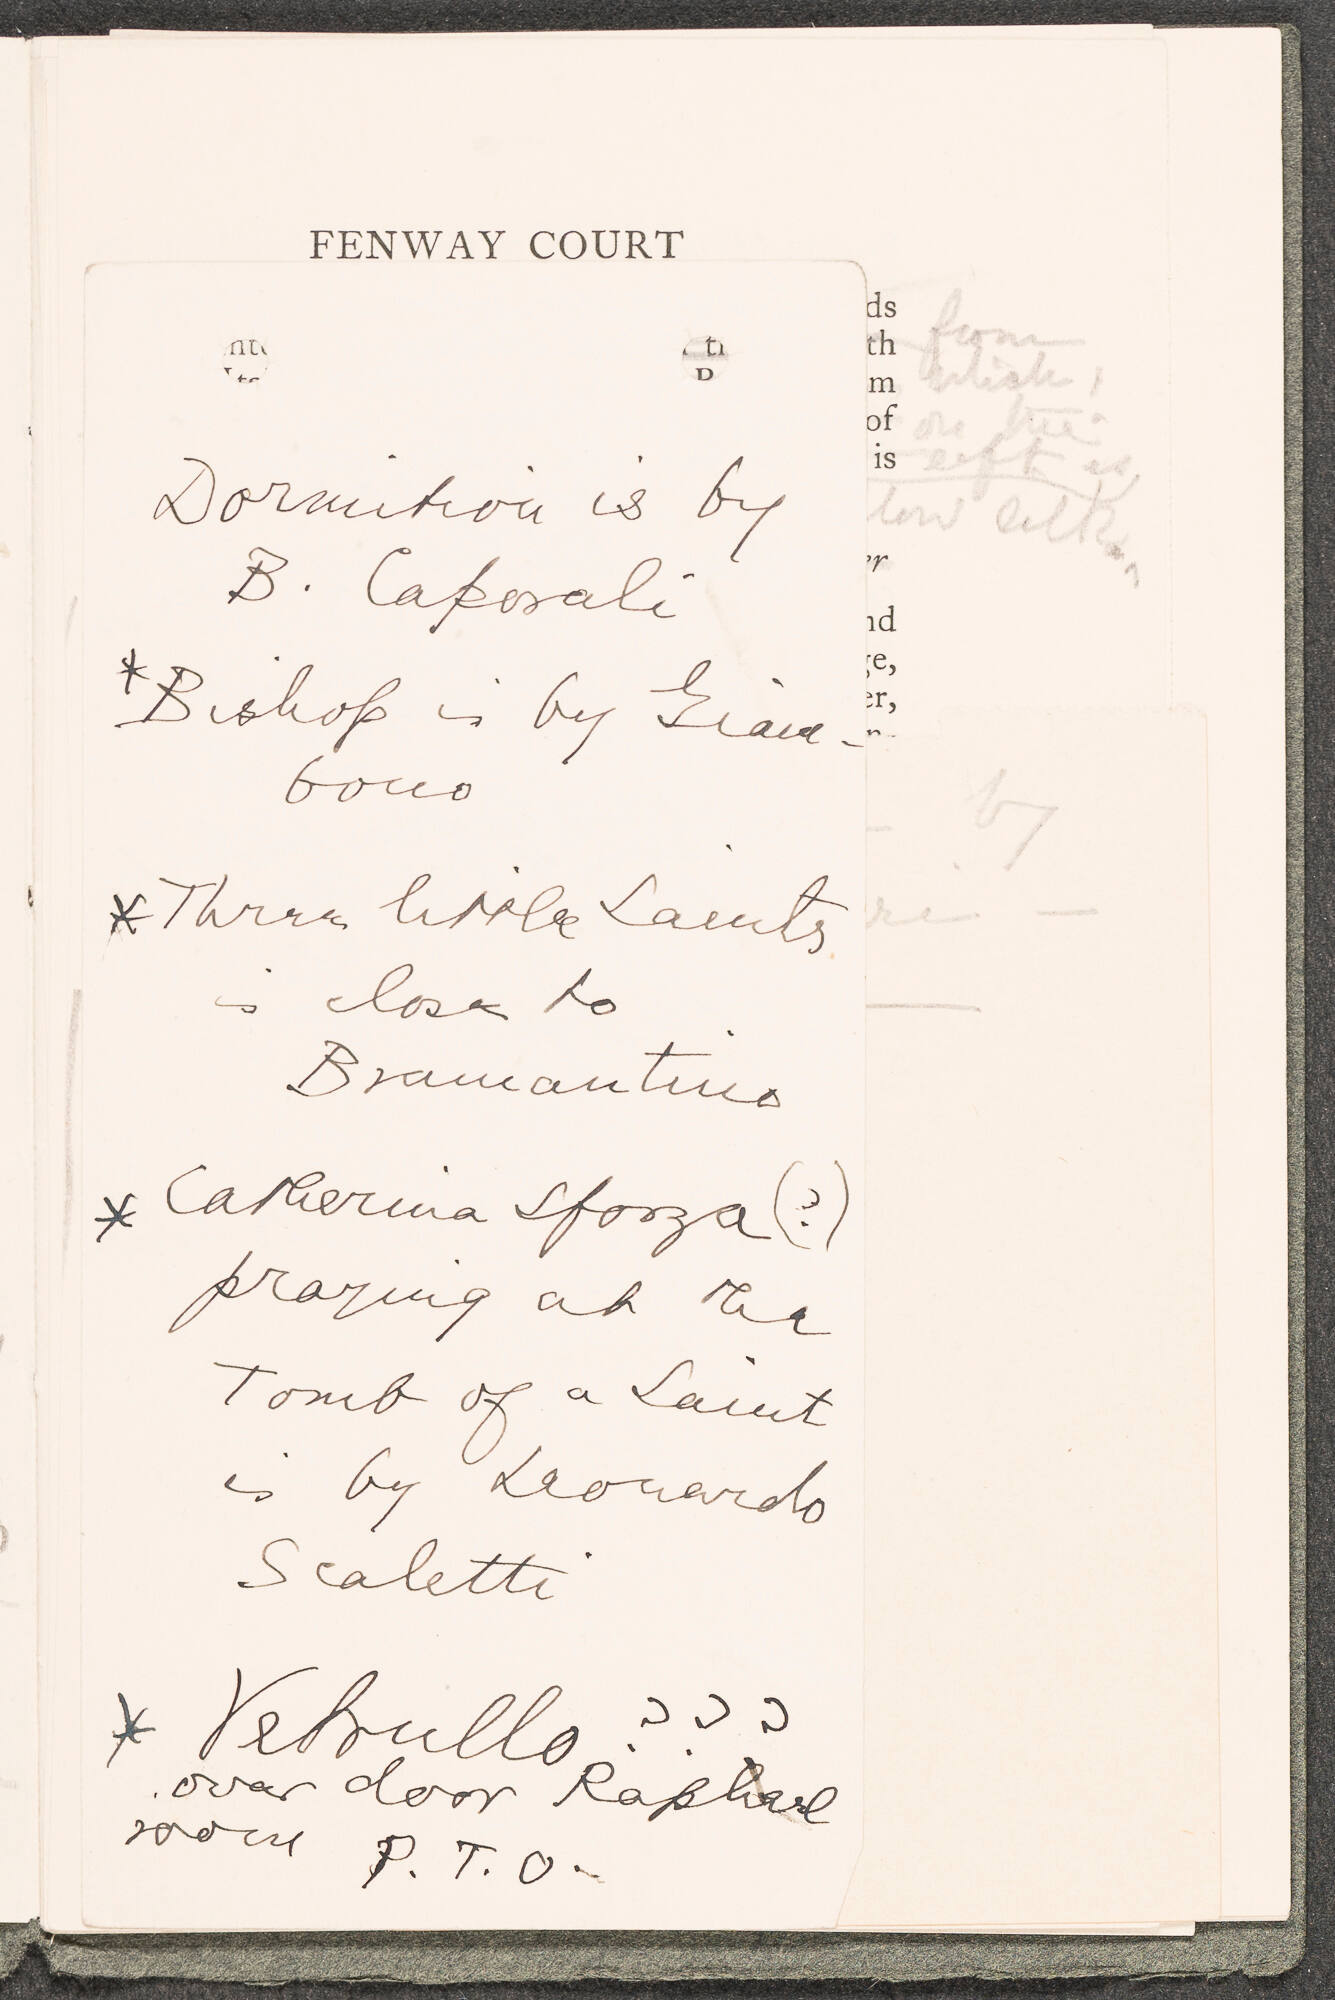 FENWAY COURT
ds
th from
m
of on the
is left is
low silk
er
nd
ge,
er,
Dormition is by
B. Caporali
* Bishop is by Giam-
bono
by
* Three little Saints
is close to
Bramantino
* Catherina Sforza (?)
praying at the
Tomb of a Saint
is by Leonardo
Scaletti
* Vetrullo ? ? ?
over door Raphael
room P. T. O.